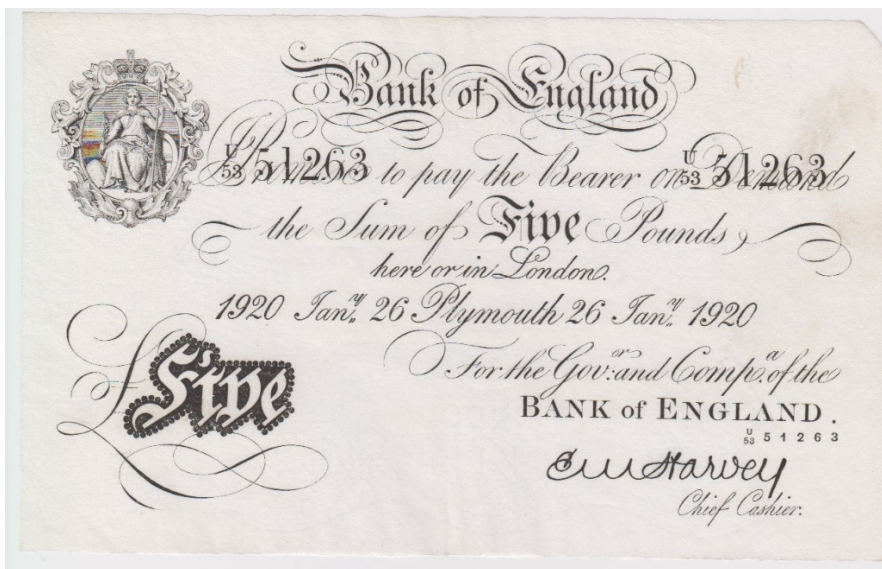 Bank of England
U/53 51263 U/53 51263
Promise to pay the Bearer on Demand
the Sum of Five Pounds,
here or in London.
1920 Jan.y 26 Plymouth 26 Jan.y 1920
For the Gov.or and Comp.a of the
BANK of ENGLAND.
U/53 51263
£ Five
E M Harvey
Chief Cashier.